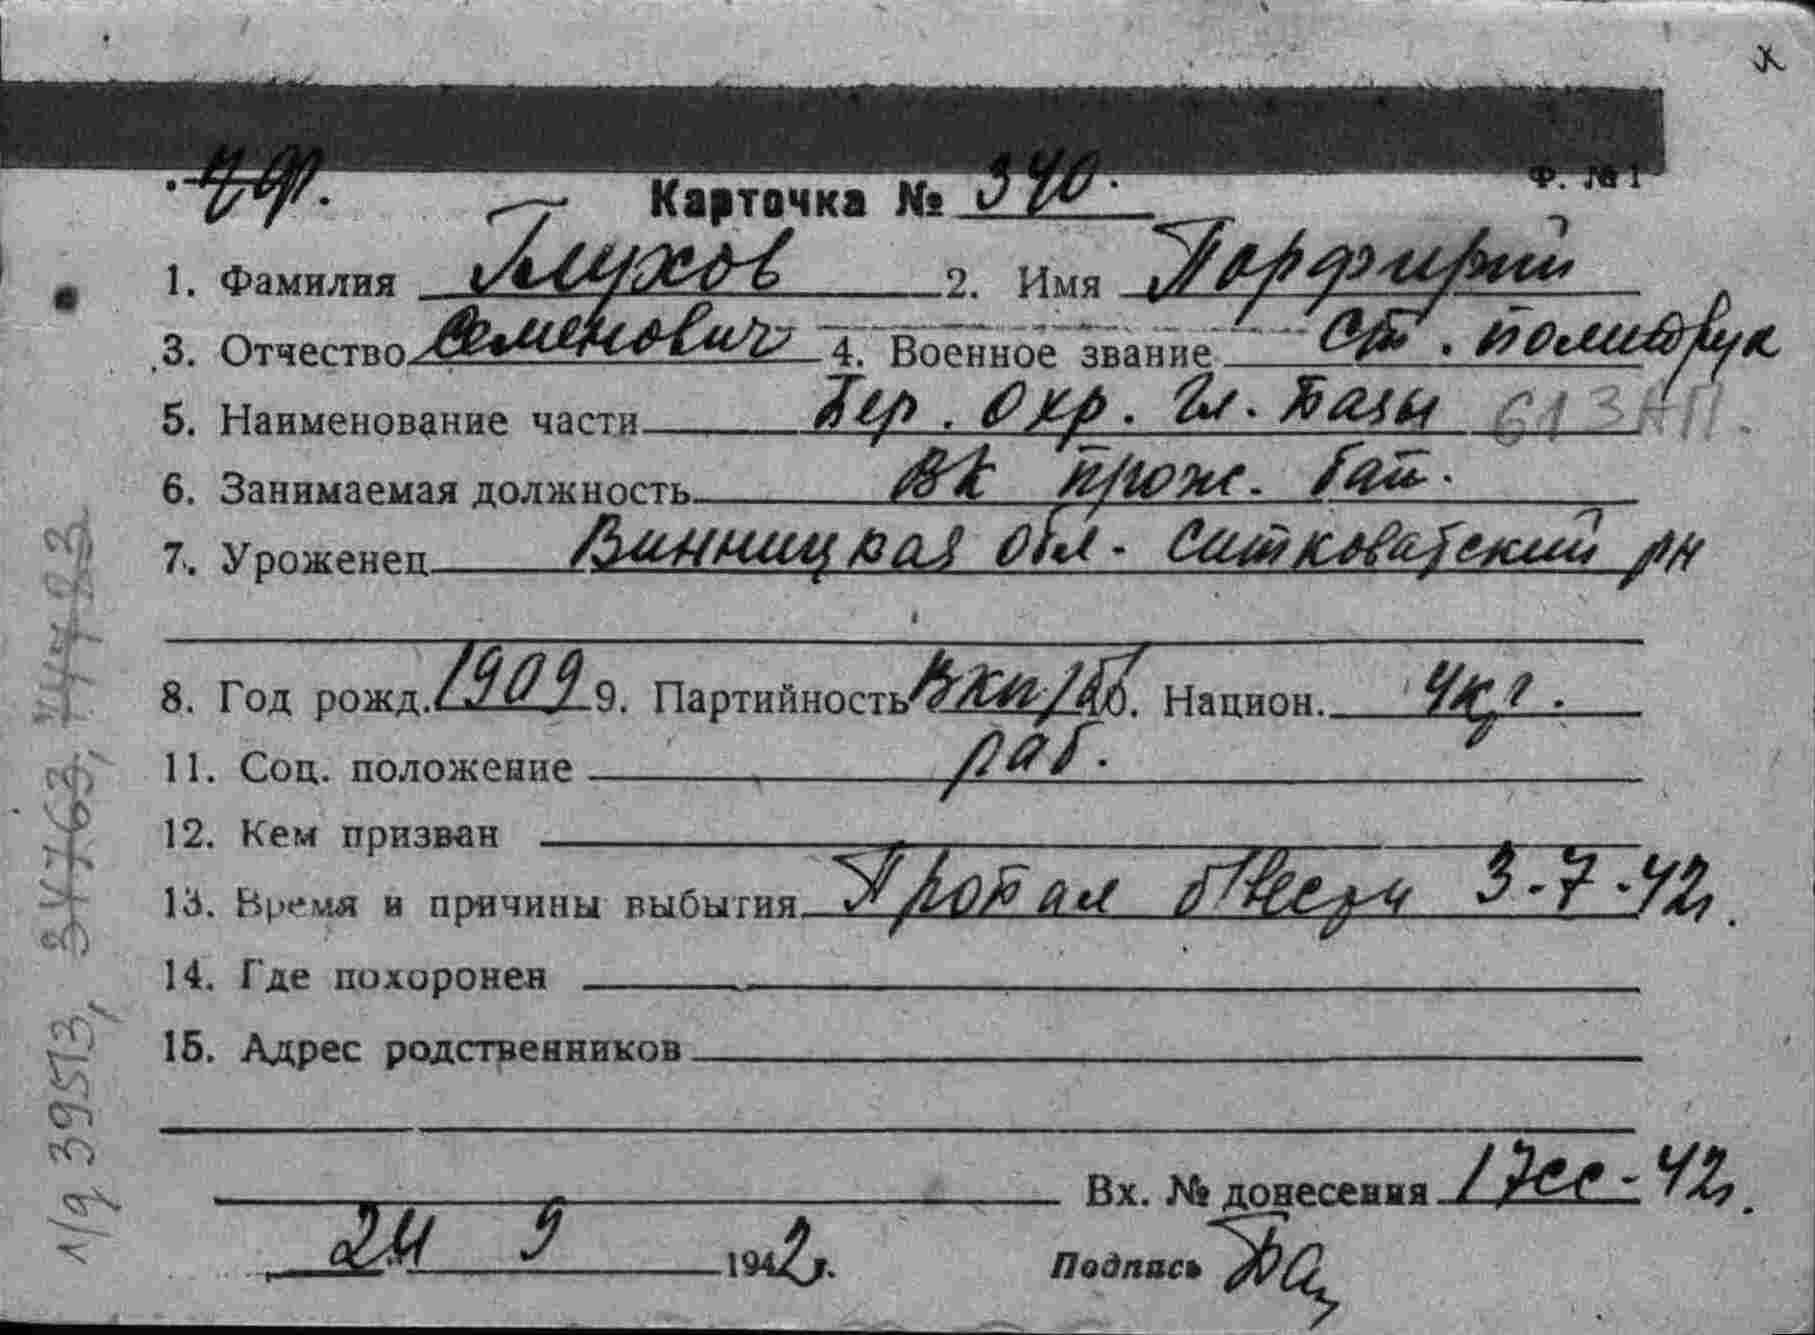 ЧФ.
Карточка № 340.
Ф. № 1
1. Фамилия Глухов 2. Имя Порфирий
3. Отчество Семенович 4. Военное звание Ст. политрук
5. Наименование части Бер. Охр. Гл. Базы 613 АП.
6. Занимаемая должность ВК прож. бат.
7. Уроженец Винницкая обл. Ситковатский рн
8. Год рожд. 1909 9. Партийность ВКП/б 10. Национ. укр.
11. Соц. положение раб.
12. Кем призван
13. Время и причины выбытия Пропал б/вести 3-7-42г.
14. Где похоронен
15. Адрес родственников
Вх. № донесения 17сс-42г.
24 9 1942г.
Подпись
л/д 39513, 34763, 74483